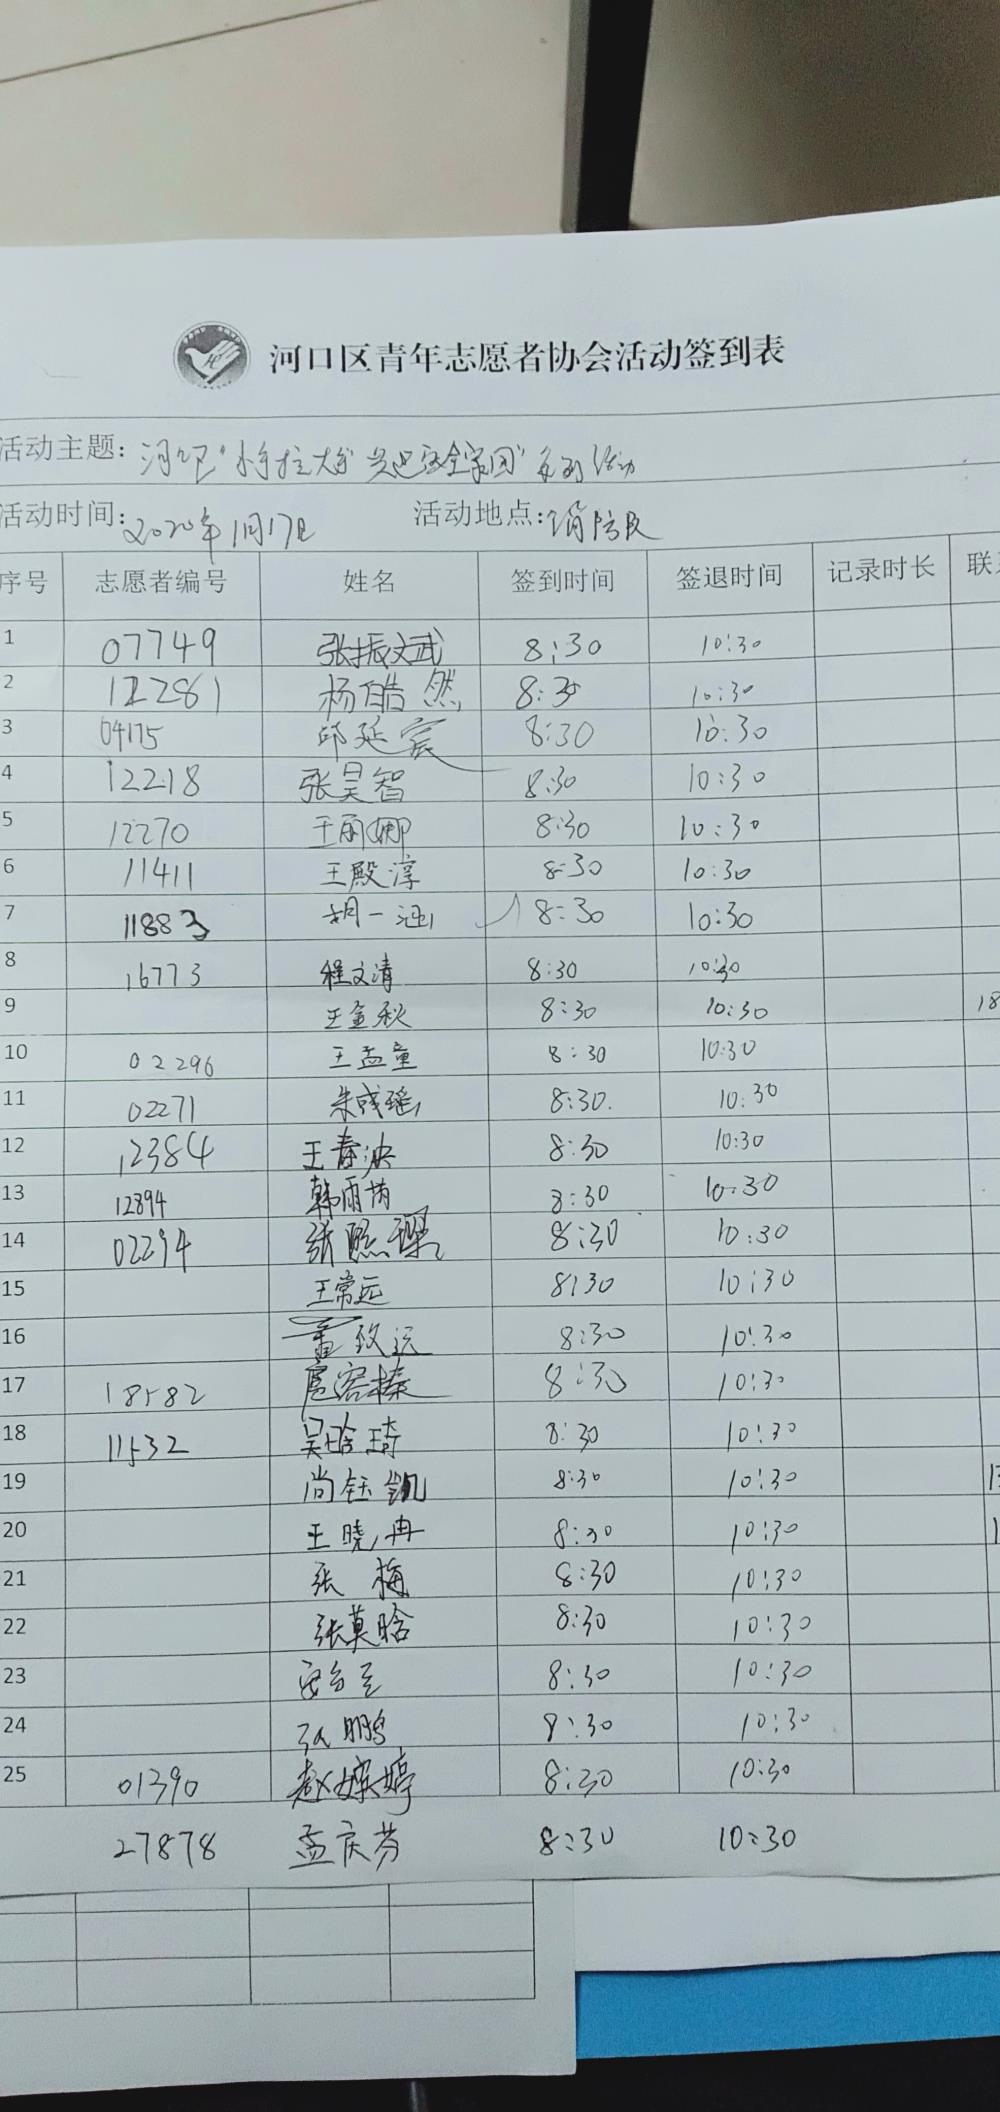 河口区青年志愿者协会活动签到表
活动主题: 河口区 系列活动
活动时间: 2020年1月17日 活动地点: 消防队
序号 志愿者编号 姓名 签到时间 签退时间 记录时长 联系
1 07749 张振文武 8:30 10:30
2 12281 杨皓然 8:30 10:30
3 04175 邱延宸 8:30 10:30
4 12218 张昊智 8:30 10:30
5 12270 王丽娜 8:30 10:30
6 11411 王殿淳 8:30 10:30
7 11883 胡一涵 8:30 10:30
8 16773 程文清 8:30 10:30
9 王金秋 8:30 10:30 18
10 02296 王孟童 8:30 10:30
11 02271 朱彧瑶 8:30. 10:30
12 12384 王春泱 8:30 10:30
13 12894 韩雨芮 8:30 10:30
14 02294 张熙璨 8:30 10:30
15 王常远 8:30 10:30
16 董致远 8:30 10:30
17 18582 扈容榛 8:30 10:30
18 11532 吴晗琦 8:30 10:30
19 尚钰凯 8:30 10:30
20 王晓冉 8:30 10:30
21 张梅 8:30 10:30
22 张莫晗 8:30 10:30
23 8:30 10:30
24 鹏 8:30 10:30
25 01390 赵婷 8:30 10:30
27878 孟庆芬 8:30 10:30